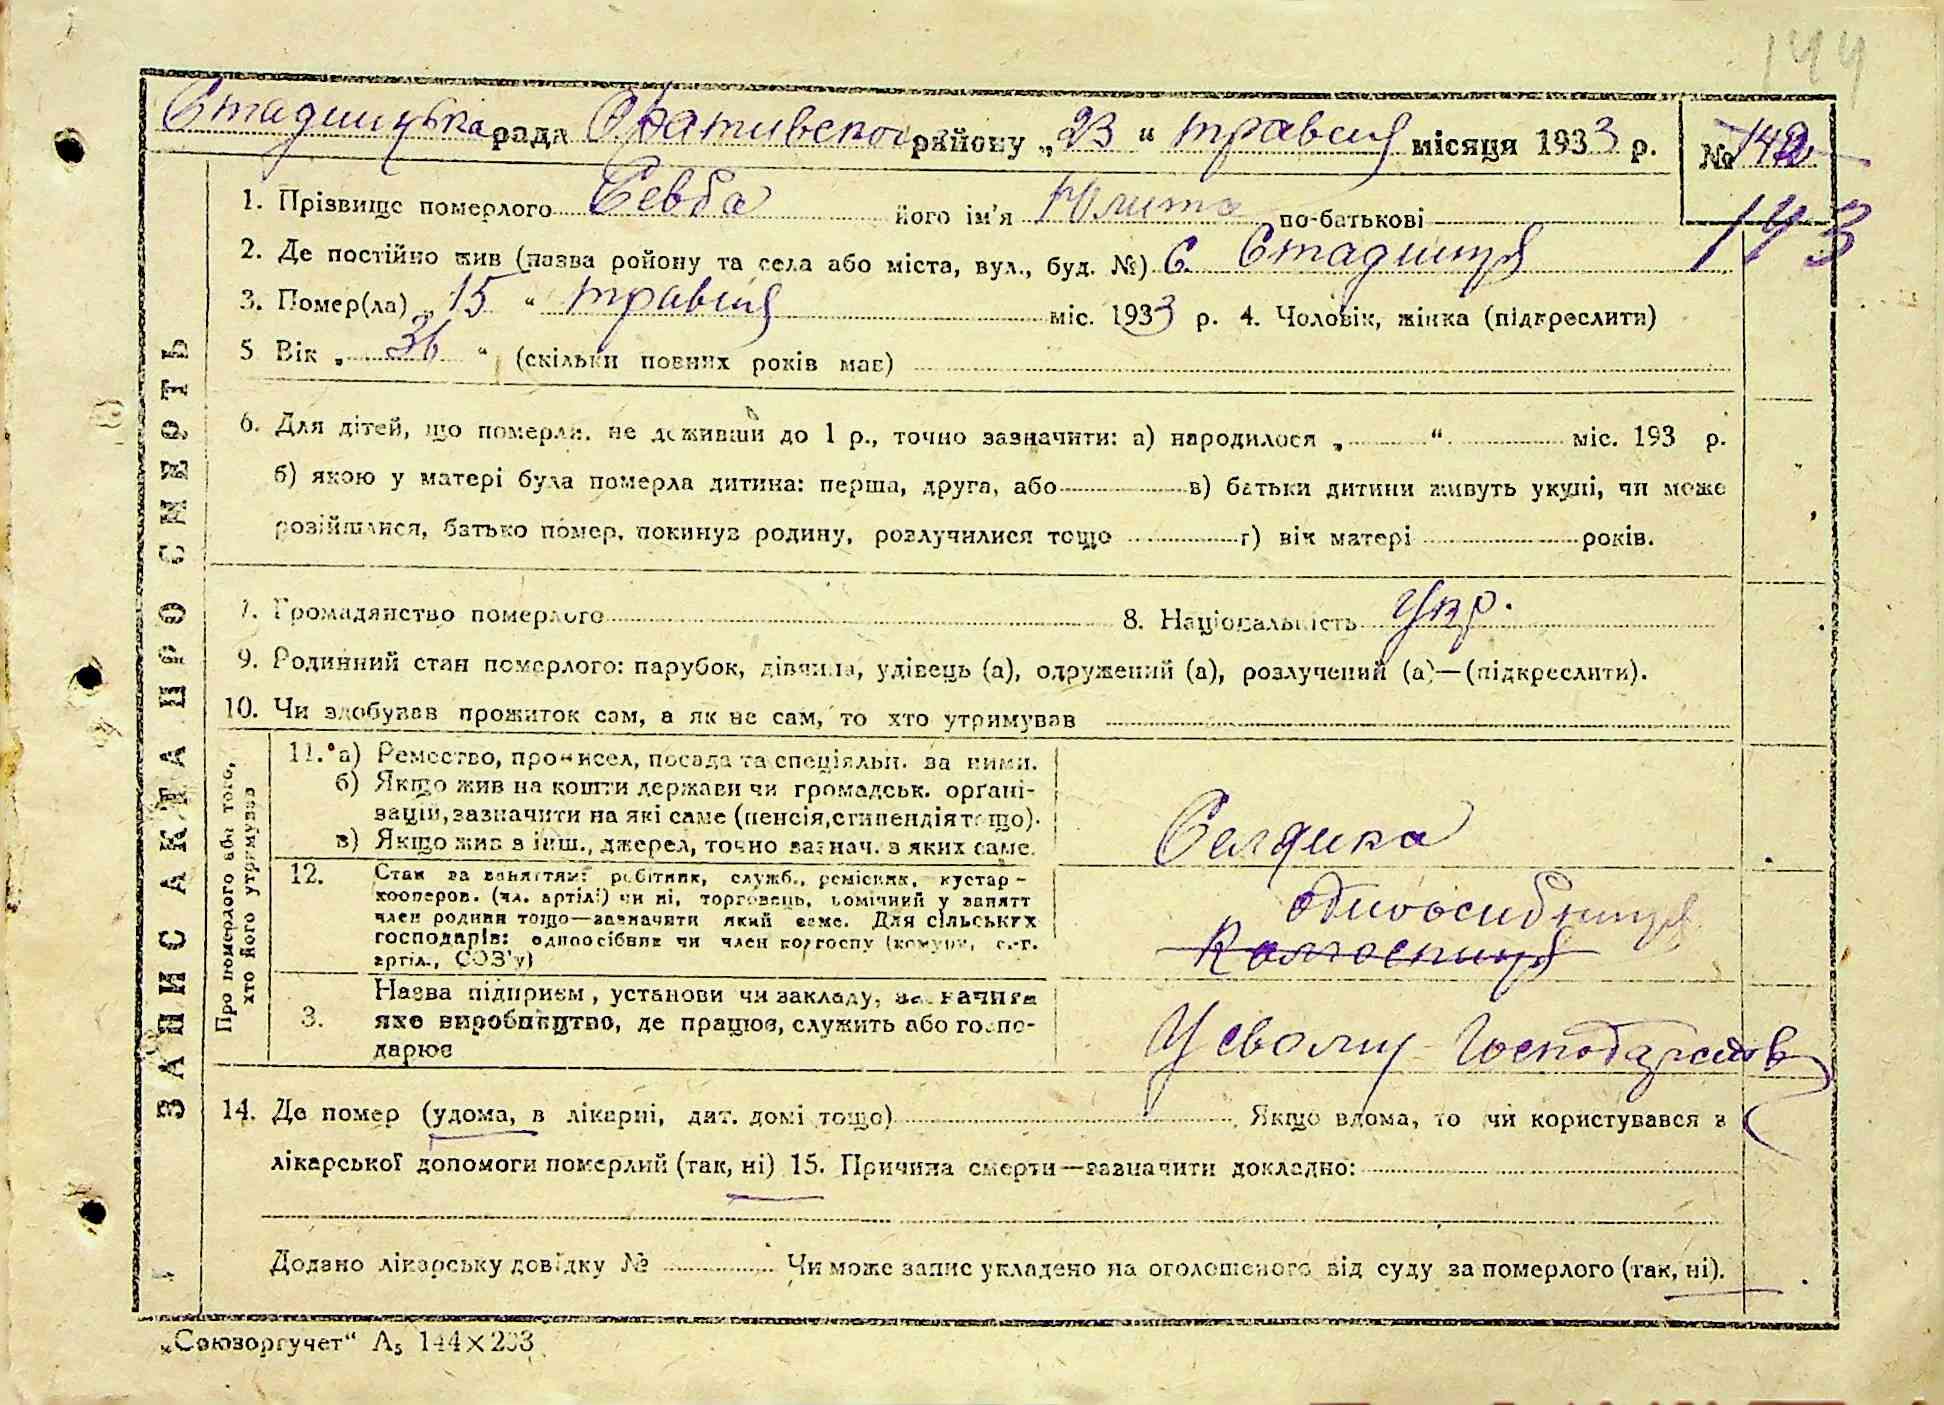 144
Стадницька рада Тетиївського району „23“ травня місяця 1933 р. № 142
143
1. Прізвище померлого Севба його ім'я Юлита по-батькові
2. Де постійно жив (назва ройону та села або міста, вул., буд. №) С. Стадниця
3. Помер(ла) „15“ травня міс. 1933 р. 4. Чоловік, жінка (підкреслити)
5 Вік „36“ (скільки повних років має)
6. Для дітей, що померли, не доживши до 1 р., точно зазначити: а) народилося „ “ міс. 193 р.
б) якою у матері була померла дитина: перша, друга, або в) батьки дитини живуть укупі, чи може
розійшлися, батько помер, покинув родину, розлучилися тощо г) вік матері років.
7. Громадянство померлого 8. Національність Укр.
9. Родинний стан померлого: парубок, дівчина, удівець (а), одружений (а), розлучений (а)—(підкреслити).
10. Чи здобував прожиток сам, а як не сам, то хто утримував
ЗАПИС АКТА ПРО СМЕРТЬ
Про померлого або того,
хто його утримував
11. а) Ремество, промисел, посада та спеціяльн. за ними.
б) Якщо жив на кошти держави чи громадськ. органі-
зацій, зазначити на які саме (пенсія, стипендія тощо).
в) Якщо жив з інш., джерел, точно зазнач. з яких саме.
Селянка
12. Стан за заняттям: робітник, служб., ремісник, кустар-
кооперов. (чл. артілі) чи ні, торговець, помічний у занятт
член родини тощо—зазначити який саме. Для сільських
господарів: одноосібник чи член колгоспу (комуни, с.-г.
артіл., СОЗ'у)
одноосибниця
Колгоспниця
3. Назва підприєм, установи чи закладу, зазначити
яке виробництво, де працює, служить або госпо-
дарює
У свому Господарстві
14. Де помер (удома, в лікарні, дит. домі тощо) Якщо вдома, то чи користувався з
лікарської допомоги померлий (так, ні) 15. Причина смерти—зазначити докладно:
Додано лікарську довідку № Чи може запис укладено на оголошеного від суду за померлого (так, ні).
„Союзоргучет“ А5 144×203